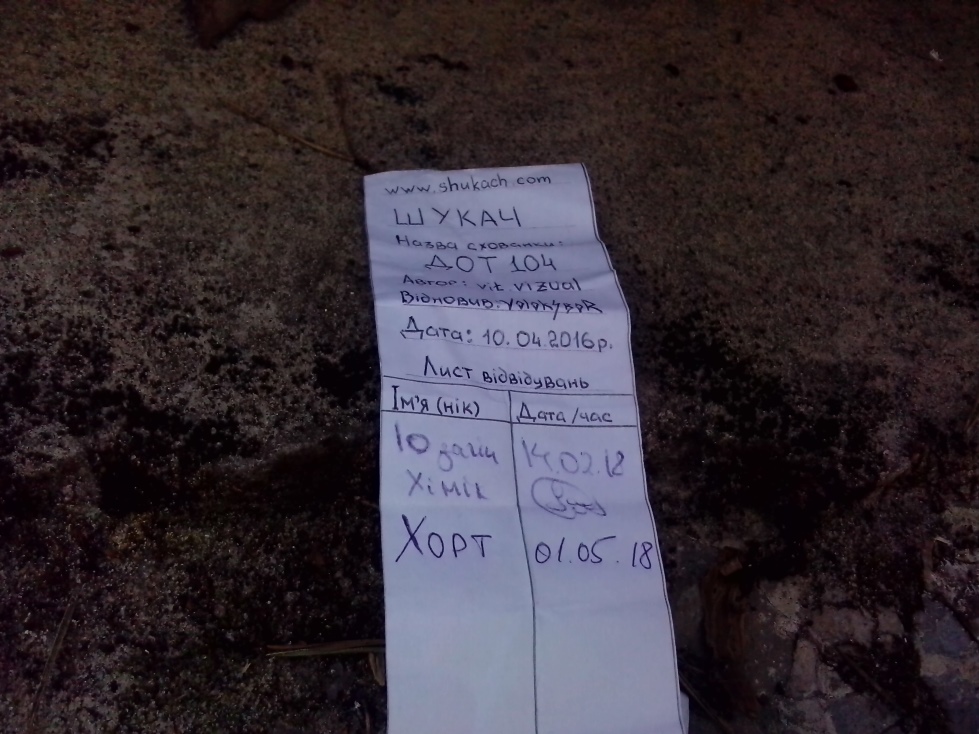 www.shukach.com
ШУКАЧ
Назва схованки:
ДОТ 104
Автор: vit vizual
Відновив:
Дата: 10.04.2016р.
Лист відвідувань
Ім'я (нік) Дата/час
14.02.18
Хімік
Хорт 01.05.18